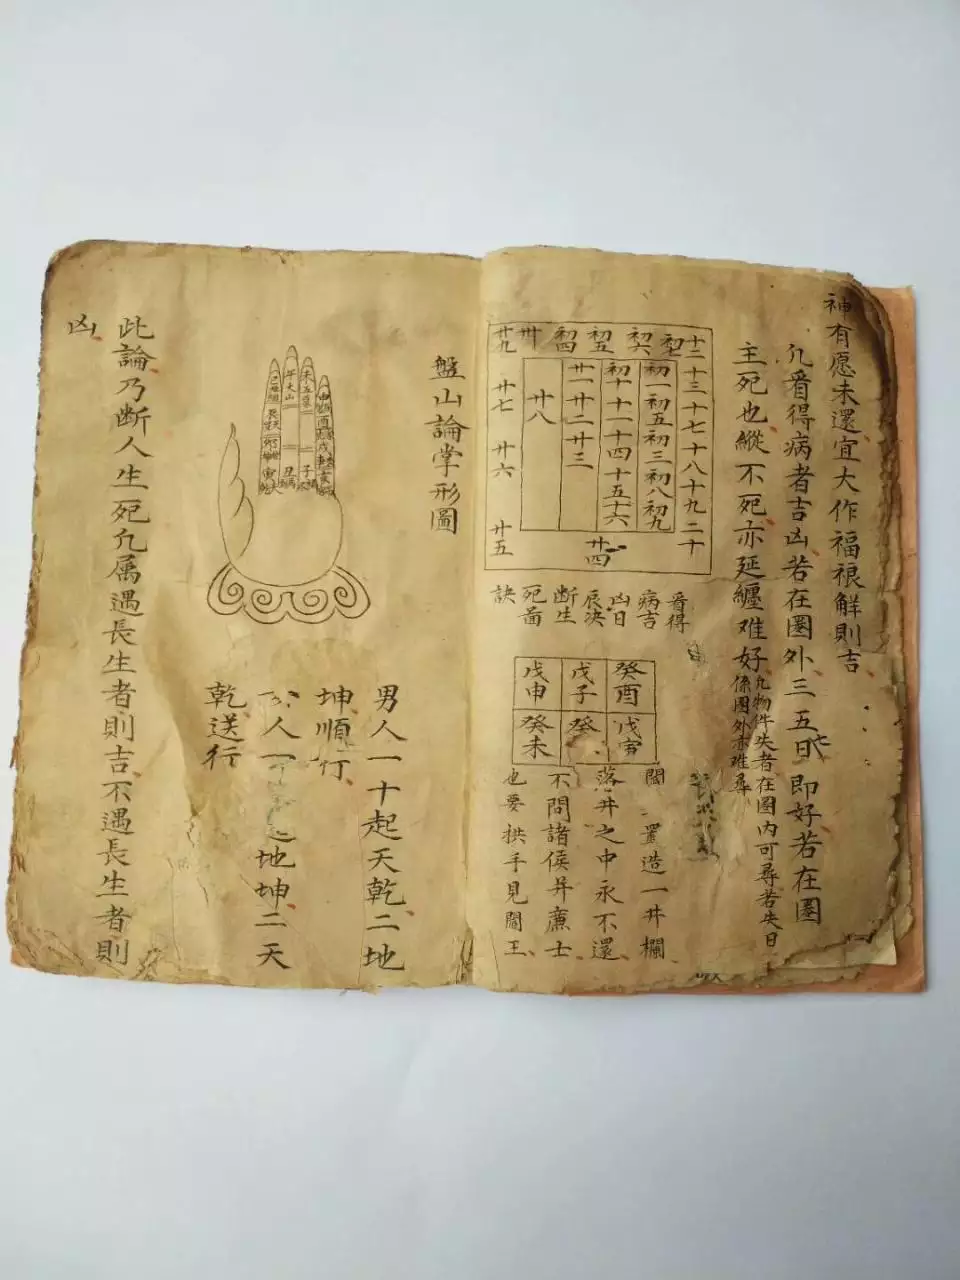 神有愿未還宜大作福禄解則吉
凢看得病者吉凶若在圏外三五日即好若在圏
主死也縱不死亦延纏难好
凢物件失者在圏内可尋若失日
係圏外亦难尋
十二 十三 十七 十八 十九 二十
初七 初六 初五 初四 卅 廿九
廿七 廿六 廿五
廿四
初一 初五 初三 初八 初九
初十 十一 十四 十五 十六
廿一 廿二 廿三
廿八
看得
病吉
凶日
辰决
断生
死畐
訣
癸酉 戊子 戊申
戊寅 癸 癸未
閻 置造一井欄
落井之中永不還
不問諸侯并㢘士
也要拱手見閻王
盤山論掌形圖
男人一十起天乾二地
坤順行
人一 地坤二天
乾送行
此論乃断人生死凢属遇長生者則吉不遇長生者則
凶